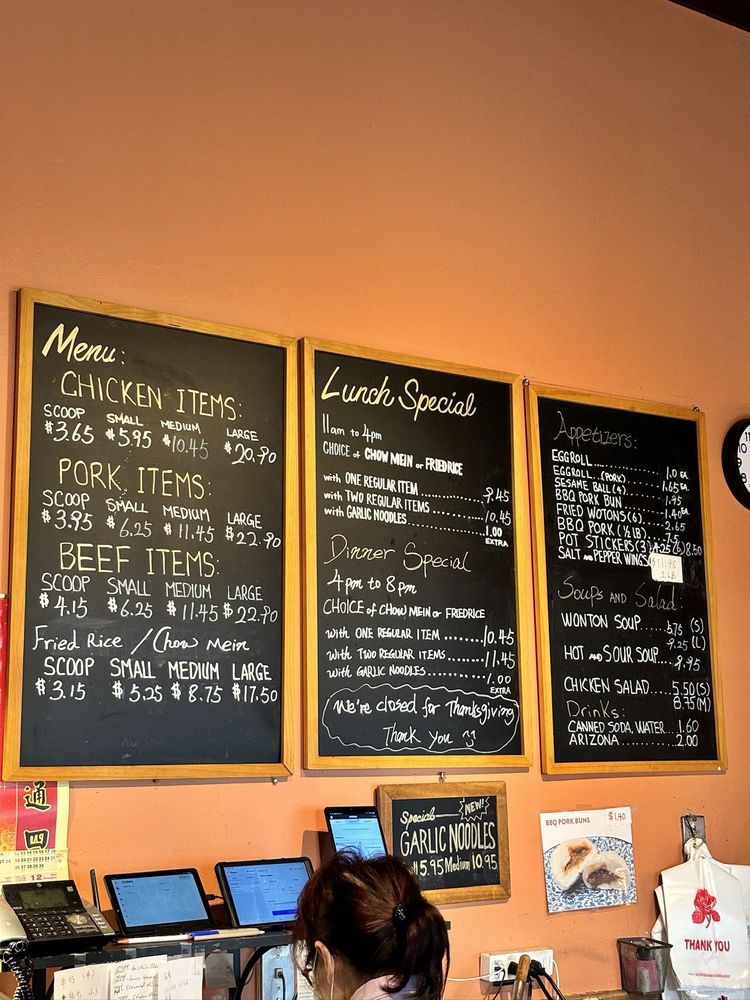 Menu:
CHICKEN ITEMS:
SCOOP SMALL MEDIUM LARGE
$3.65 $5.95 $10.45 $20.90
PORK ITEMS:
SCOOP SMALL MEDIUM LARGE
$3.95 $6.25 $11.45 $22.90
BEEF ITEMS:
SCOOP SMALL MEDIUM LARGE
$4.15 $6.25 $11.45 $22.90
Fried Rice / Chow Mein
SCOOP SMALL MEDIUM LARGE
$3.15 $5.25 $8.75 $17.50
Lunch Special
11am to 4pm
CHOICE of CHOW MEIN or FRIEDRICE
with ONE REGULAR ITEM .......... 9.45
with TWO REGULAR ITEMS .......... 10.45
with GARLIC NOODLES .......... 1.00
EXTRA
Dinner Special
4pm to 8pm
CHOICE of CHOW MEIN or FRIEDRICE
with ONE REGULAR ITEM ....... 10.45
with TWO REGULAR ITEMS ....... 11.45
with GARLIC NOODLES .......... 1.00
EXTRA
We're closed for Thanksgiving
Thank you
Appetizers:
EGGROLL .......... 1.0 EA.
EGGROLL (PORK) .......... 1.65 EA
SESAME BALL (4) .......... 1.95
BBQ PORK BUN .......... 1.40 EA
FRIED WOTONS (6) .......... 2.65
BBQ PORK (½ lB) .......... 7.5
POT STICKERS (3) 4.25 (6) 8.50
SALT AND PEPPER WINGS
Soups AND Salad:
WONTON SOUP ..... 5.75 (S)
9.25 (L)
HOT AND SOUR SOUP .... 9.95
CHICKEN SALAD ..... 5.50 (S)
8.75 (M)
Drinks:
CANNED SODA, WATER ... 1.60
ARIZONA ............ 2.00
Special NEW!
GARLIC NOODLES
5.95 Medium 10.95
BBQ PORK BUNS $1.40
通
四
12
THANK YOU